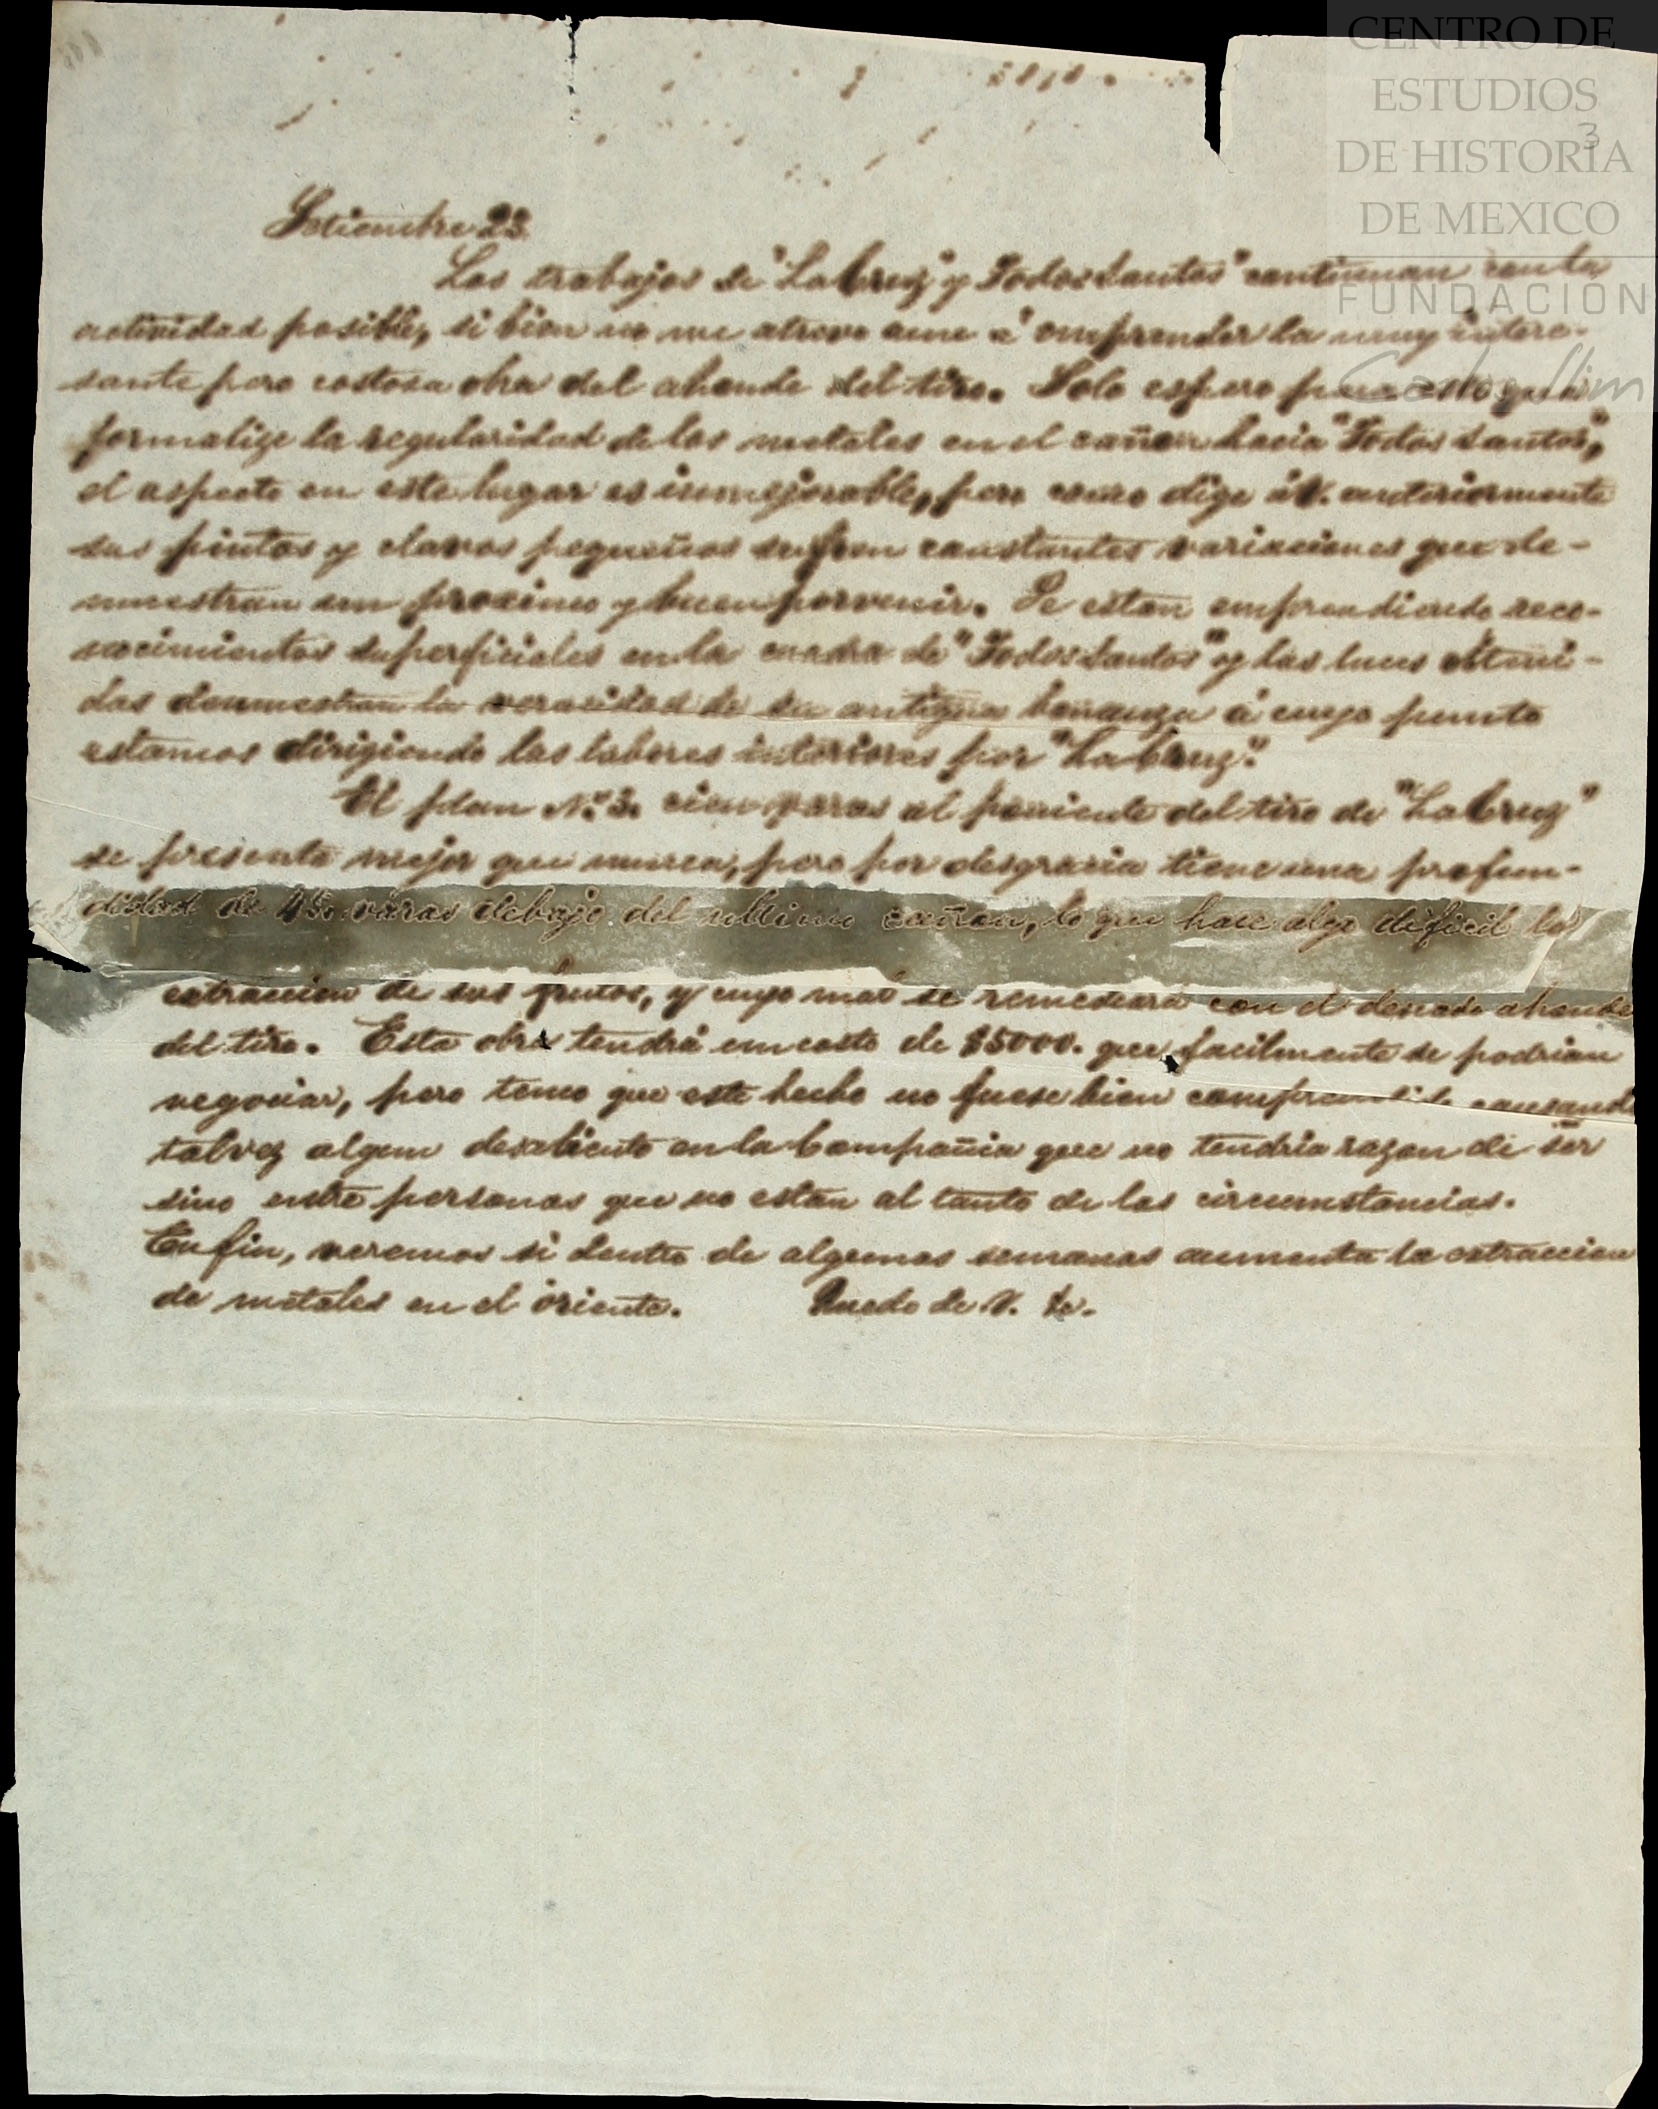 CENTRO DE
ESTUDIOS
DE HISTORIA
DE MEXICO
FUNDACIÓN
Carlos Slim
3
Setiembre 23.
Los trabajos de "La Cruz" y Todos Santos" continuan con la
actividad posible, si bien no me atrevo aun á emprender la muy intere-
sante pero costosa obra del ahonde del tiro. Solo espero para esto que se
formalize la regularidad de los metales en el cañon hacia "Todos Santos",
el aspecto en este lugar es inmejorable, pero como dige á V. anteriormente
sus pintas y clavos pequeños sufren constantes variaciones que de-
muestran un proximo y buen porvenir. Se estan emprendiendo reco-
nocimientos superficiales en la cuadra de "Todos Santos" y las luces obteni-
das demuestran la veracidad de su antigua bonanza á cuyo punto
estamos dirigiendo las labores interiores por "La Cruz".
El plan No. 3. cien varas al poniente del tiro de "La Cruz"
se presenta mejor que nunca, pero por desgracia tiene una profun-
didad de 45. varas debajo del ultimo cañon, lo que hace algo dificil la
extraccion de sus frutos, y cuyo mal se remediará con el deseado ahonde
del tiro. Esta obra tendrá un costo de $5000. que facilmente se podrian
negociar, pero temo que este hecho no fuese bien comprendido causando
talvez algun desaliento en la Compañia que no tendria razon de ser
sino entre personas que no estan al tanto de las circumstancias.
En fin, veremos si dentro de algunas semanas aumenta la extraccion
de metales en el oriente. Quedo de V. &c.